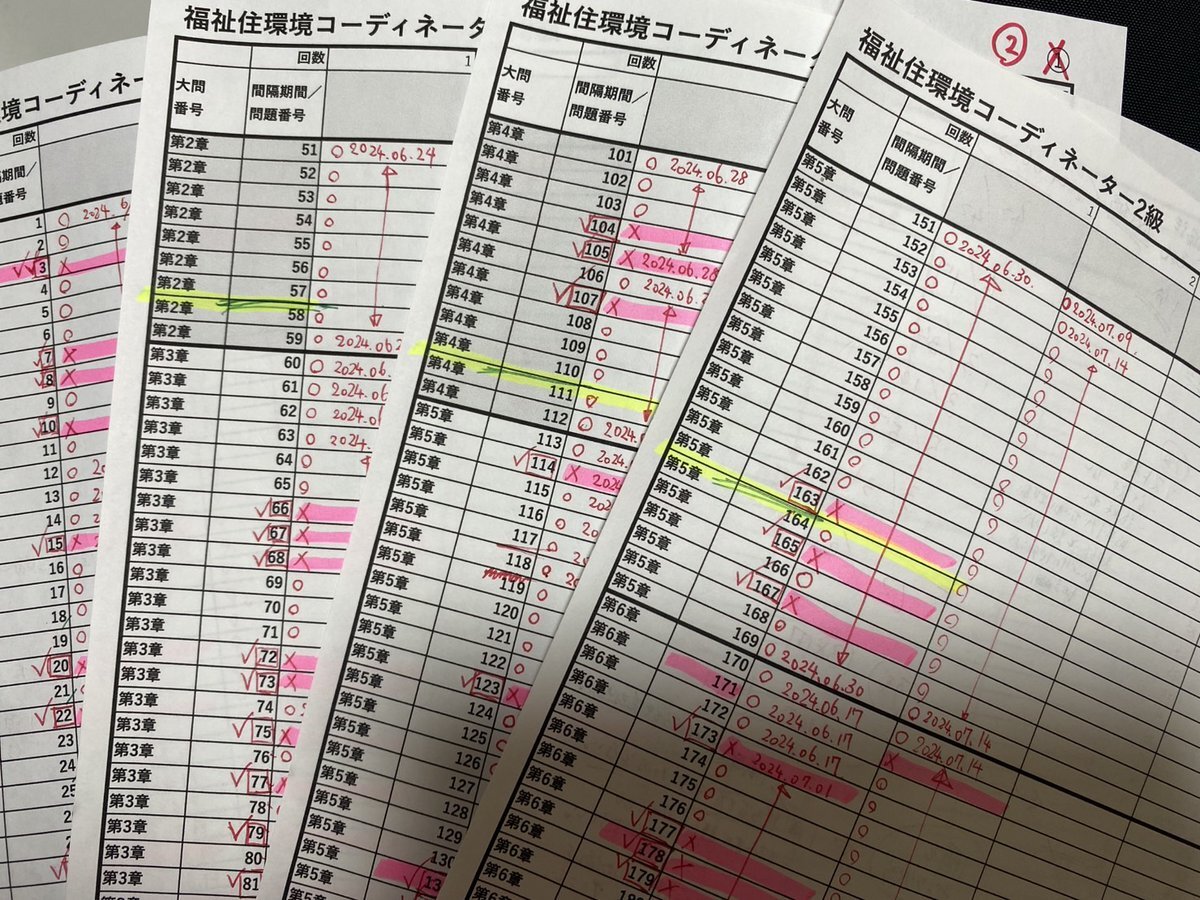 境コーディネー
回数
問題番号
1 ○
2 ○
3 ×
4 ○
5 ○
6 ○
7 ×
8 ×
9 ○
10 ×
11 ○
12 ○
13 ○
14 ○
15 ×
16 ○
17 ○
18 ○
19 ○
20 ×
21
22
23
24
25
福祉住環境コーディネータ
回数 1
大問番号 間隔期間/問題番号
第2章 51 ○ 2024.06.24
第2章 52 ○
第2章 53 ○
第2章 54 ○
第2章 55 ○
第2章 56 ○
第2章 57 ○
第2章 58 ○
第2章 59 ○
第3章 60 ○
第3章 61 ○
第3章 62 ○
第3章 63 ○
第3章 64 ○
第3章 65 ○
第3章 66 ×
第3章 67 ×
第3章 68 ×
第3章 69 ○
第3章 70 ○
第3章 71 ○
第3章 72 ×
第3章 73 ×
第3章 74 ○
第3章 75 ×
第3章 76 ○
第3章 77
第3章 78
第3章 79
第3章 80
第3章 81
福祉住環境コーディネー
回数
大問番号 間隔期間/問題番号
第4章 101 ○ 2024.06.28
第4章 102 ○
第4章 103 ○
第4章 104 ×
第4章 105 × 2024.06.28
第4章 106 ○
第4章 107 ×
第4章 108 ○
第4章 109 ○
第4章 110 ○
第4章 111 ○
第4章 112 ○
第5章 113 ○
第5章 114 ×
第5章 115 ○
第5章 116 ○
第5章 117 ○
第5章 118 ○
第5章 119 ○
第5章 120 ○
第5章 121 ○
第5章 122 ○
第5章 123 ×
第5章 124 ○
第5章 125 ○
第5章 126 ○
第5章 127
第5章 128
第5章 129
第5章 130
② ①
福祉住環境コーディネーター2級
回数 1 2
大問番号 間隔期間/問題番号
第5章 151 ○ 2024.06.30. ○ 2024.07.09
第5章 152 ○ ○ 2024.07.14
第5章 153 ○ ○
第5章 154 ○ ○
第5章 155 ○ ○
第5章 156 ○ ○
第5章 157 ○ ○
第5章 158 ○ ○
第5章 159 ○ ○
第5章 160 ○ ○
第5章 161 ○ ○
第5章 162 ○ ○
第5章 163 × ○
第5章 164 ○ ○
第5章 165 × ○
第5章 166 ○ ○
第5章 167 × ○
第5章 168 ○ ○
第5章 169 ○ 2024.06.30 ○ 2024.07.14
第6章 170 ○ 2024.06.17 ○ 2024.07.14
第6章 171 ○ 2024.06.17 ×
第6章 172 ○ 2024.06.17 ○
第6章 173 × 2024.07.01 ○
第6章 174 ○ ○
第6章 175 ○ ○
第6章 176 ○ ○
第6章 177 ×
第6章 178 ×
第6章 179 ×